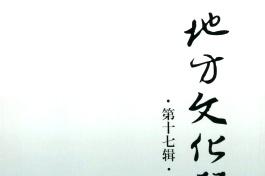 地方文化
·第十七辑·